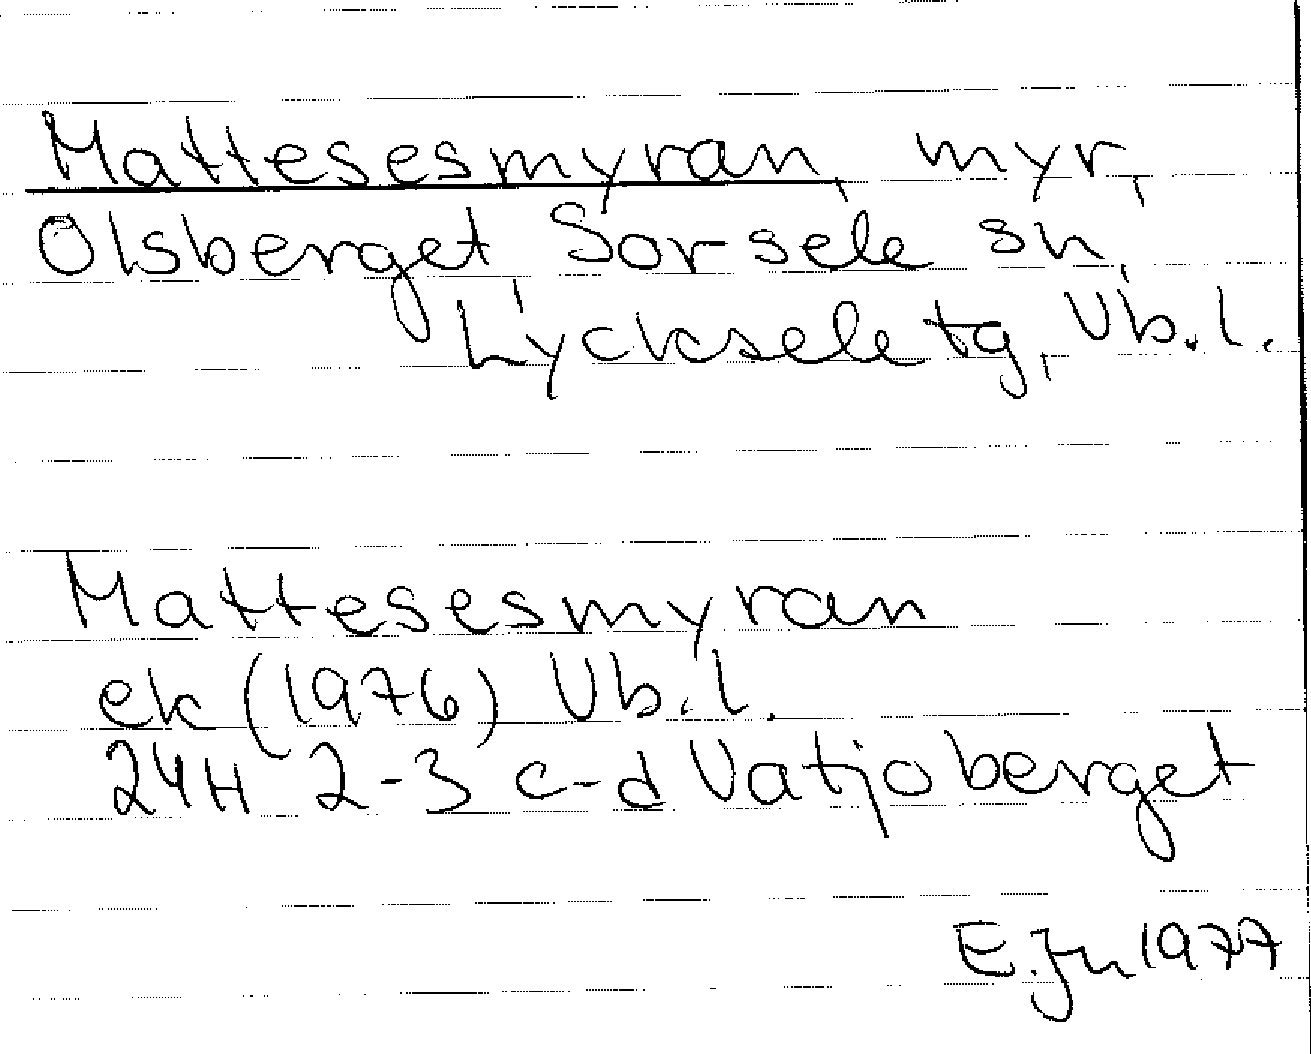 Mattesesmyran, myr,
Olsberget, Sorsele sn,
Lycksele tg, Vb.l.
Mattesesmyran
ek (1976) Vb.l.
24H 2-3 c-d Vatjoberget
E.Jn 1977